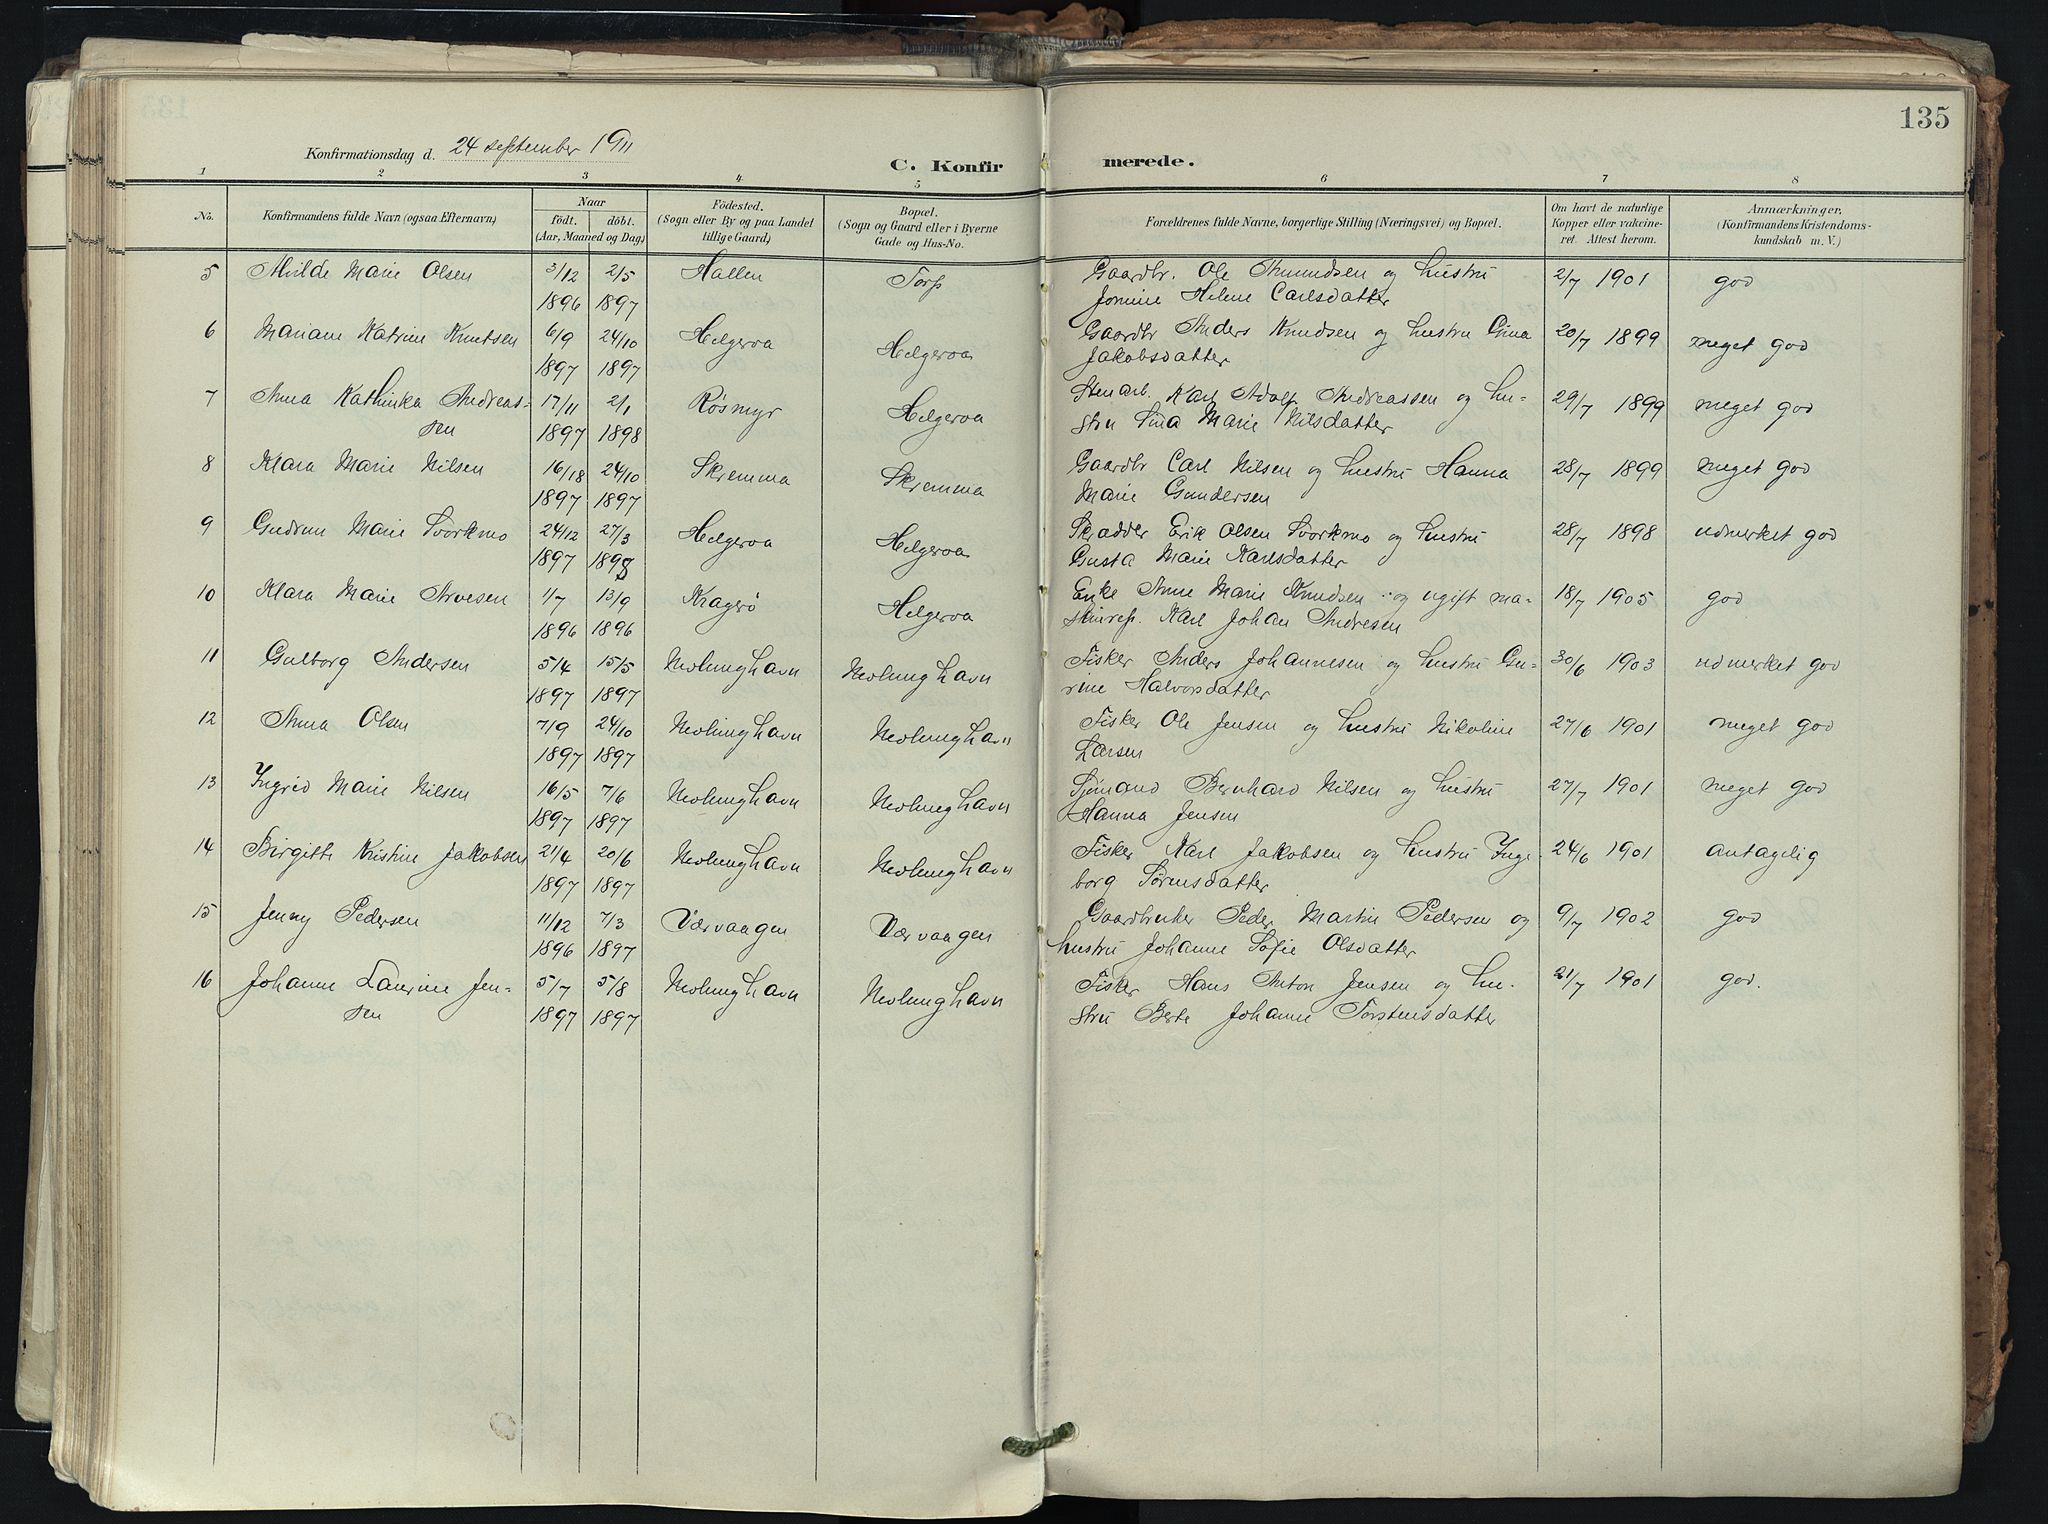 135
Konfirmationsdag d. 24 september 1911
C. Konfirmerede.
1 2 3 4 5 6 7 8
No.
Konfirmandens fulde Navn (ogsaa Efternavn)
Naar
født. døbt.
(Aar, Maaned og Dag)
Fødested.
(Sogn eller By og paa Landet
tillige Gaard)
Bopæl.
(Sogn og Gaard eller i Byerne
Gade og Hus-No.
Forældrenes fulde Navne, borgerlige Stilling (Næringsvei) og Bopæl.
Om havt de naturlige
Kopper eller vakcine-
ret. Attest herom.
Anmærkninger.
(Konfirmandens Kristendoms-
kundskab m. V.)
5 Alvilde Marie Olsen 3/12 2/5 Hallen Torp Gaardbr. Ole Amundsen og hustru 2/7 1901 god
1896 1897 Jomine Helene Carlsdatter
6 Mariane Katrine Knutsen 6/9 24/10 Helgeroa Helgeroa Gaardbr Anders Knudsen og hustru Gina 20/7 1899 meget god
1897 1897 Jakobsdatter
7 Anna Kathinka Andreas- 17/11 2/1 Røsmyr Helgeroa Stenarb. Karl Adolf Andreassen og hu- 29/7 1899 meget god
sen 1897 1898 stru Sina Marie Nilsdatter
8 Klara Marie Nilsen 16/18 24/10 Skremma Skremma Gaardbr Carl Nilsen og hustru Hanna 28/7 1899 meget god
1897 1897 Marie Gundersen
9 Gudrun Marie Svorkmo 24/12 27/3 Helgeroa Helgeroa Skrædder Erik Olsen Svorkmo og hustru 28/7 1898 udmerket god
1897 1898 Gusta Marie Karlsdatter
10 Klara Marie Arvesen 1/7 13/9 Kragerø Helgeroa Enke Anne Marie Knudsen og ugift ma- 18/7 1905 god
1896 1896 skinrep. Karl Johan Andresen
11 Gulborg Andersen 5/4 15/5 Nevlunghavn Nevlunghavn Fisker Anders Johannesen og hustru Gu- 30/6 1903 udmerket god
1897 1897 rine Halvorsdatter
12 Anna Olsen 7/9 24/10 Nevlunghavn Nevlunghavn Fisker Ole Jensen og hustru Nikoline 27/6 1901 meget god
1897 1897 Larsen
13 Ingrid Marie Nilsen 16/5 7/6 Nevlunghavn Nevlunghavn Sjømand Bernhard Nilsen og hustru 27/7 1901 meget god
1897 1897 Hanna Jensen
14 Birgitte Kristine Jakobsen 21/4 20/6 Nevlunghavn Nevlunghavn Fisker Karl Jakobsen og hustru Inge- 24/6 1901 antagelig
1897 1897 borg Sørensdatter
15 Jenny Pedersen 11/12 7/3 Værvaagen Værvaagen Gaardbruker Peder Martin Pedersen og 9/7 1902 god
1896 1897 hustru Johanne Sofie Olsdatter
16 Johanne Laurine Jen- 5/7 5/8 Nevlunghavn Nevlunghavn Fisker Hans Anton Jensen og hu- 21/7 1901 god.
sen 1897 1897 stru Berte Johanne Torstensdatter